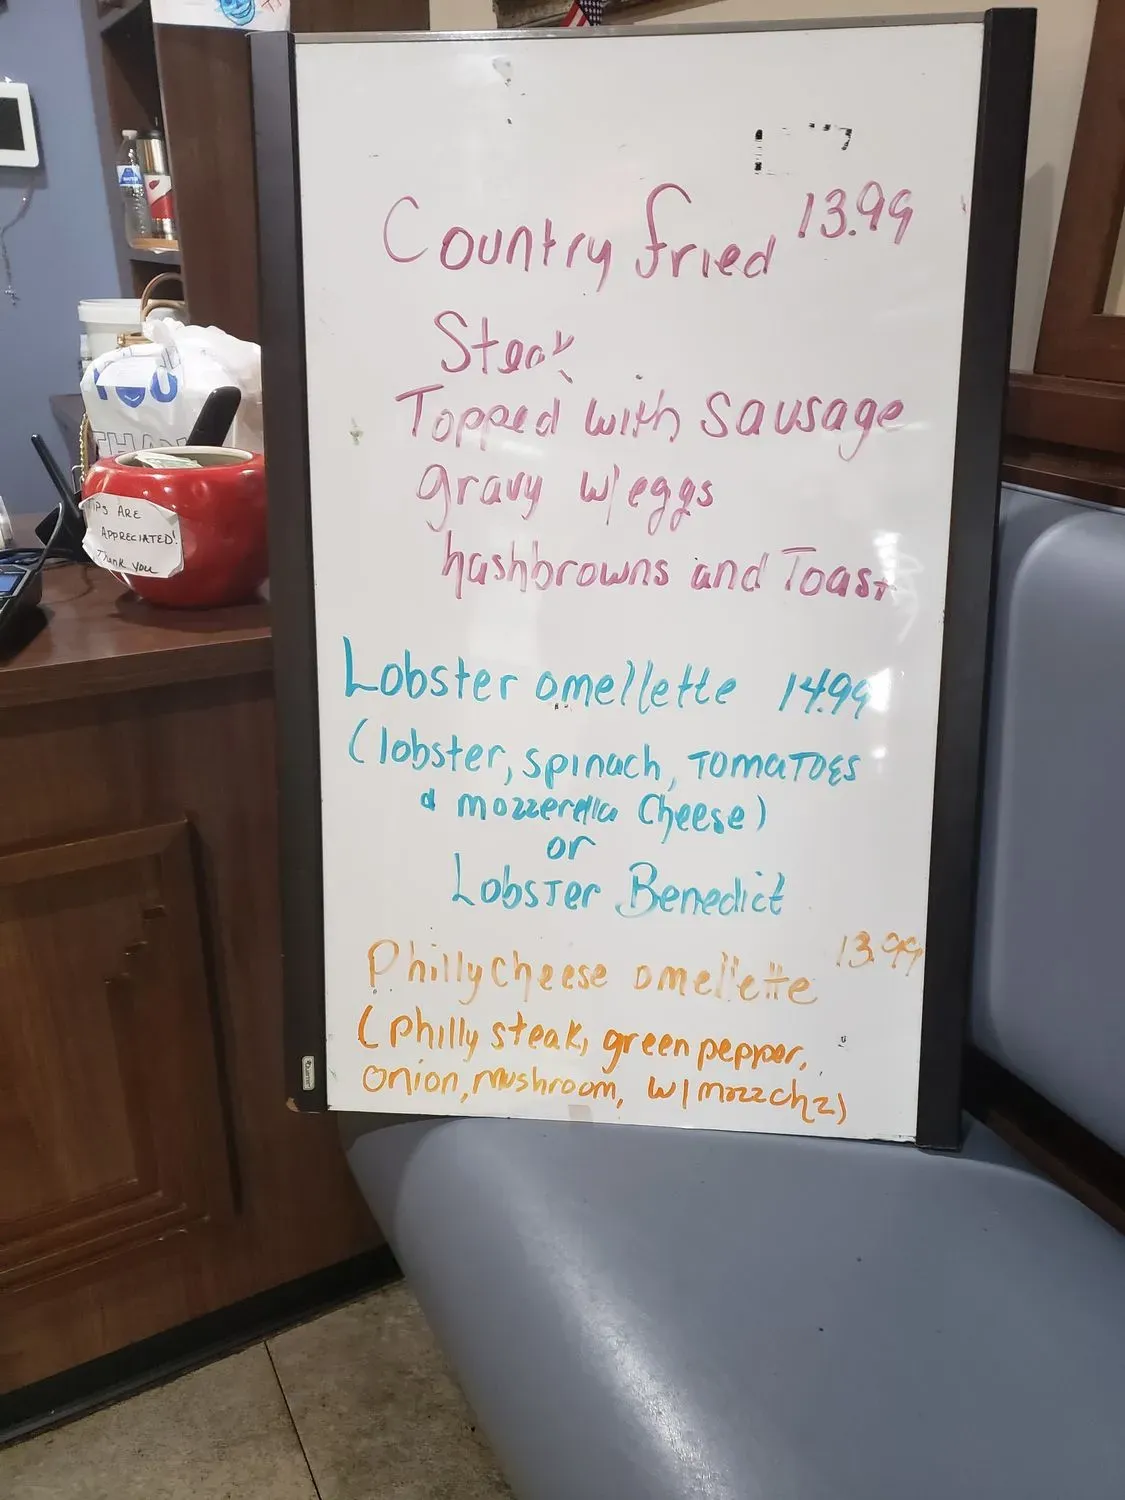 Country fried 13.99
Steak
Topped with sausage
gravy w/eggs
hashbrowns and Toast
Lobster omellette 14.99
(lobster, spinach, TOMATOES
& mozzerella Cheese)
or
LobsTer Benedict
Philly cheese omellette 13.99
(philly steak, green pepper,
onion, mushroom, w/mozz chz)
TIPS ARE
APPRECIATED!
Thank you
THAN